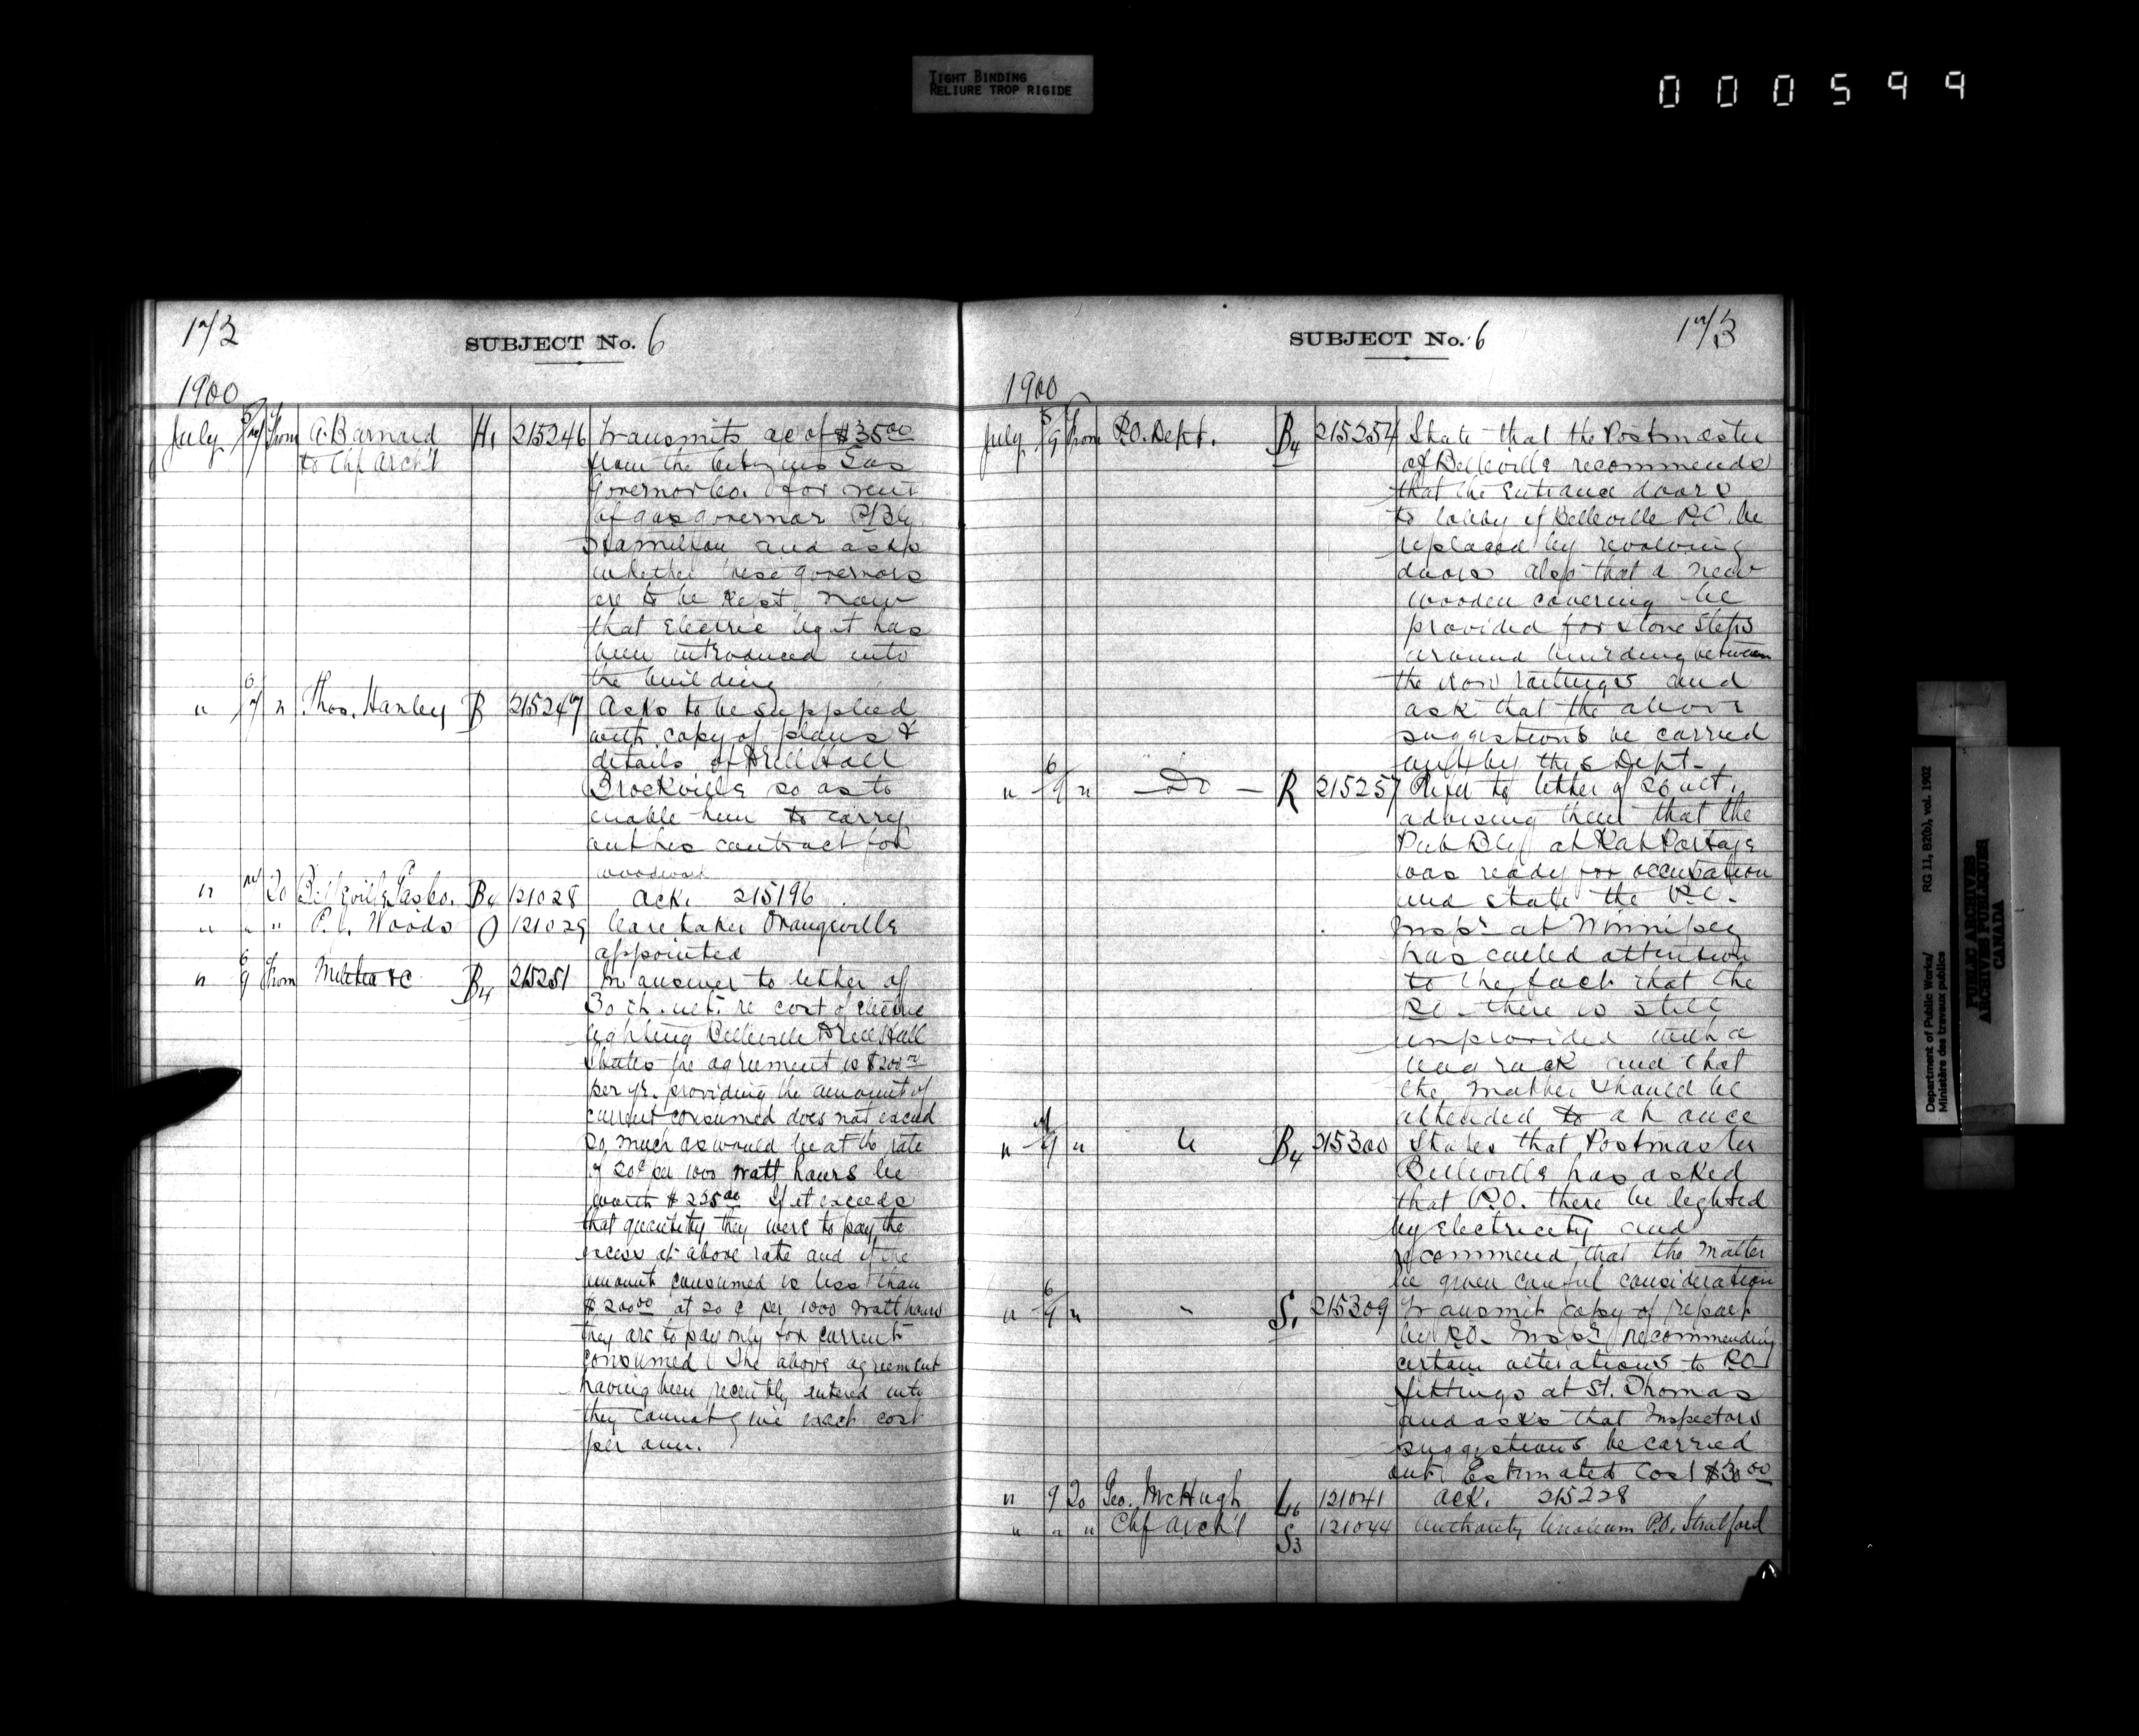 TIGHT BINDING
RELIURE TROP RIGIDE
000599
172
SUBJECT No. 6
1900
July 5/7 From A. Barnard H1 215246 Transmits a/c of $35.00
to Chf Arch't from the Citizens Gas
Governor Co. for rent
of gas governor P/Bg
Hamilton and asks
whether these governors
are to be kept now
that Electric light has
been introduced into
the building
" 6/7 " Thos. Hanley B 215247 Asks to be supplied
with copy of plans &
details of Drill Hall
Brockville so as to
enable him to carry
out his contract for
woodwork
" 7 To Belleville Gas Co. B4 121028 Ack. 215196
" " " P. J. Woods O 121029 Caretaker Orangeville
appointed
" 6/9 From Militia &c B4 215251 In answer to letter of
30th ult. re cost of electric
lighting Belleville Drill Hall
States the agreement is $200.00
per yr. providing the amount of
current consumed does not exceed
so much as would be at the rate
of 20¢ per 1000 watt hours be
worth $225.00 If it exceeds
that quantity they were to pay the
excess at above rate and if the
amount consumed is less than
$200.00 at 20¢ per 1000 Watt hours
they are to pay only for current
consumed. The above agreement
having been recently entered into
they cannot give exact cost
per ann.
SUBJECT No. 6
173
1900
July 5/9 From P.O. Dept. B4 215254 State that the Postmaster
of Belleville recommends
that the entrance doors
to lobby of Belleville P.O. be
replaced by revolving
doors also that a new
wooden covering be
provided for stone steps
around building between
the iron railings and
ask that the above
suggestions be carried
out by this Dept.
" 6/9 " Do R 215257 Refer to letter of 26 ult.
advising them that the
Pub Bldg at Rat Portage
was ready for occupation
and state the P.O.
Inspr at Winnipeg
has called attention
to the fact that the
P.O. there is still
unprovided with a
bag rack and that
the matter should be
attended to at once
" 7/9 " " B4 215300 States that Postmaster
Belleville has asked
that P.O. there be lighted
by electricity and
recommend that the matter
be given careful consideration
" 6/9 " " S1 215309 Transmit copy of report
by P.O. Inspr recommending
certain alterations to P.O.
fittings at St. Thomas
and asks that Inspectors
suggestions be carried
out. Estimated Cost $30.00
" 9 To Geo. McHugh L6 121041 Ack. 215228
" " " Chf Arch't S3 121044 Authority linoleum P.O. Stratford
Department of Public Works/
Ministère des travaux publics
RG 11, B2(b), vol. 1902
PUBLIC ARCHIVES
ARCHIVES PUBLIQUES
CANADA